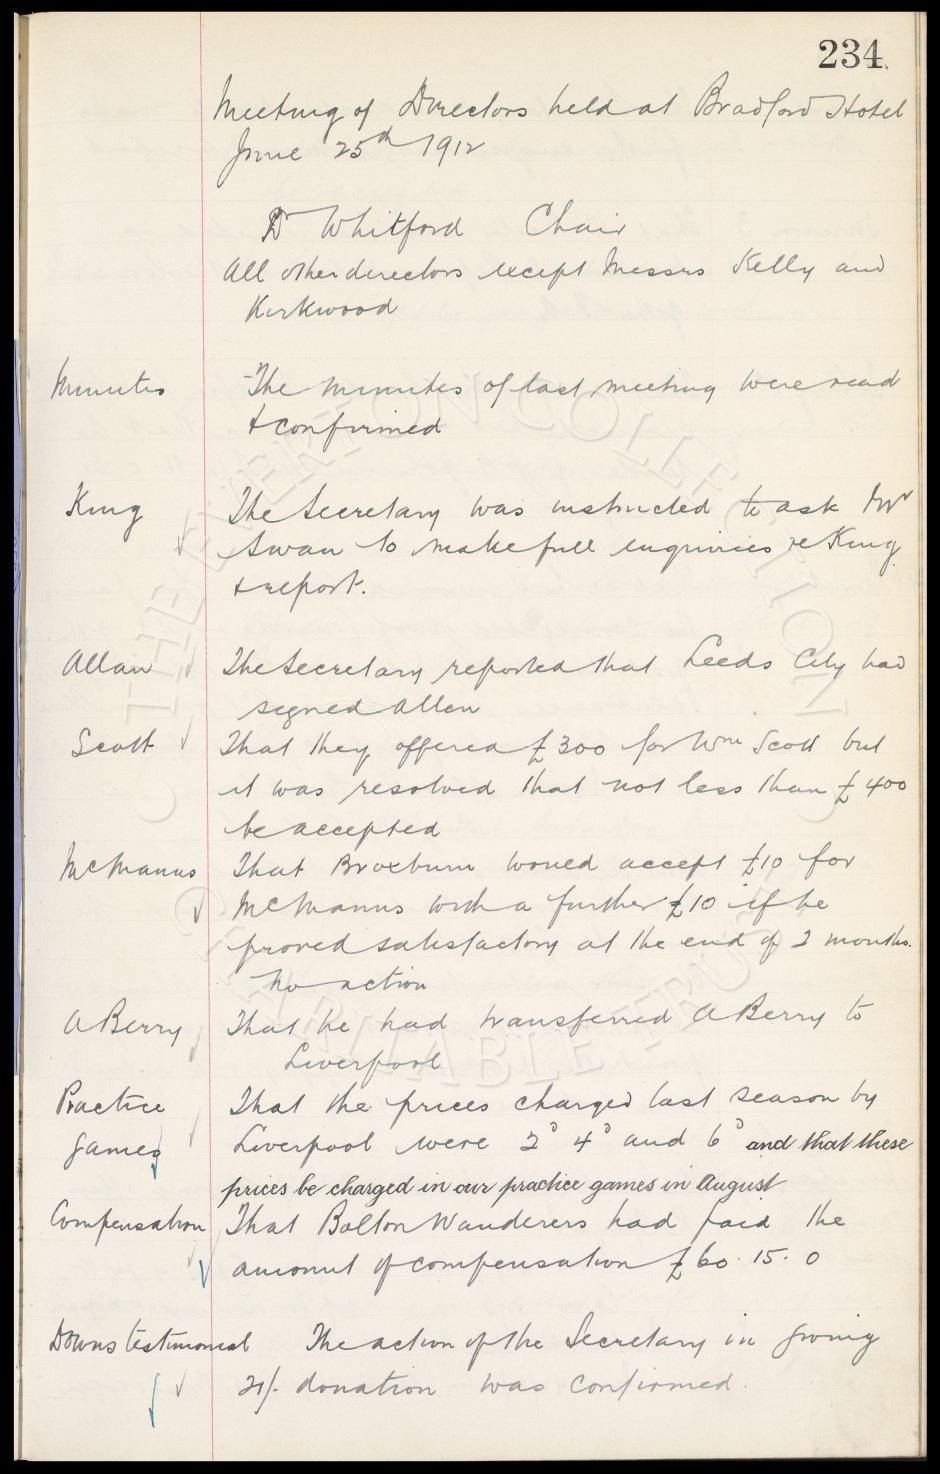 234
Meeting of Directors held at Bradford Hotel
June 25th 1912
Dr Whitford Chair
All other directors except Messrs Kelly and
Kirkwood
Minutes The minutes of last meeting were read
& confirmed
King The Secretary was instructed to ask Mr
Swan to make full enquiries re King
& report.
Allan The Secretary reported that Leeds City had
signed Allen
Scott That they offered £300 for Wm Scott but
it was resolved that not less than £400
be accepted
McManus That Broxburn would accept £10 for
McManus with a further £10 if he
proved satisfactory at the end of 2 months.
No action
A Berry That he had transferred A Berry to
Liverpool
Practice That the prices charged last season by
games Liverpool were 2d 4d and 6d and that these
prices be charged in our practice games in August
Compensation That Bolton Wanderers had paid the
amount of compensation £60.15.0
Downs testimonial The action of the Secretary in giving
21/- donation was confirmed.
© THE EVERTON COLLECTION CHARITABLE TRUST